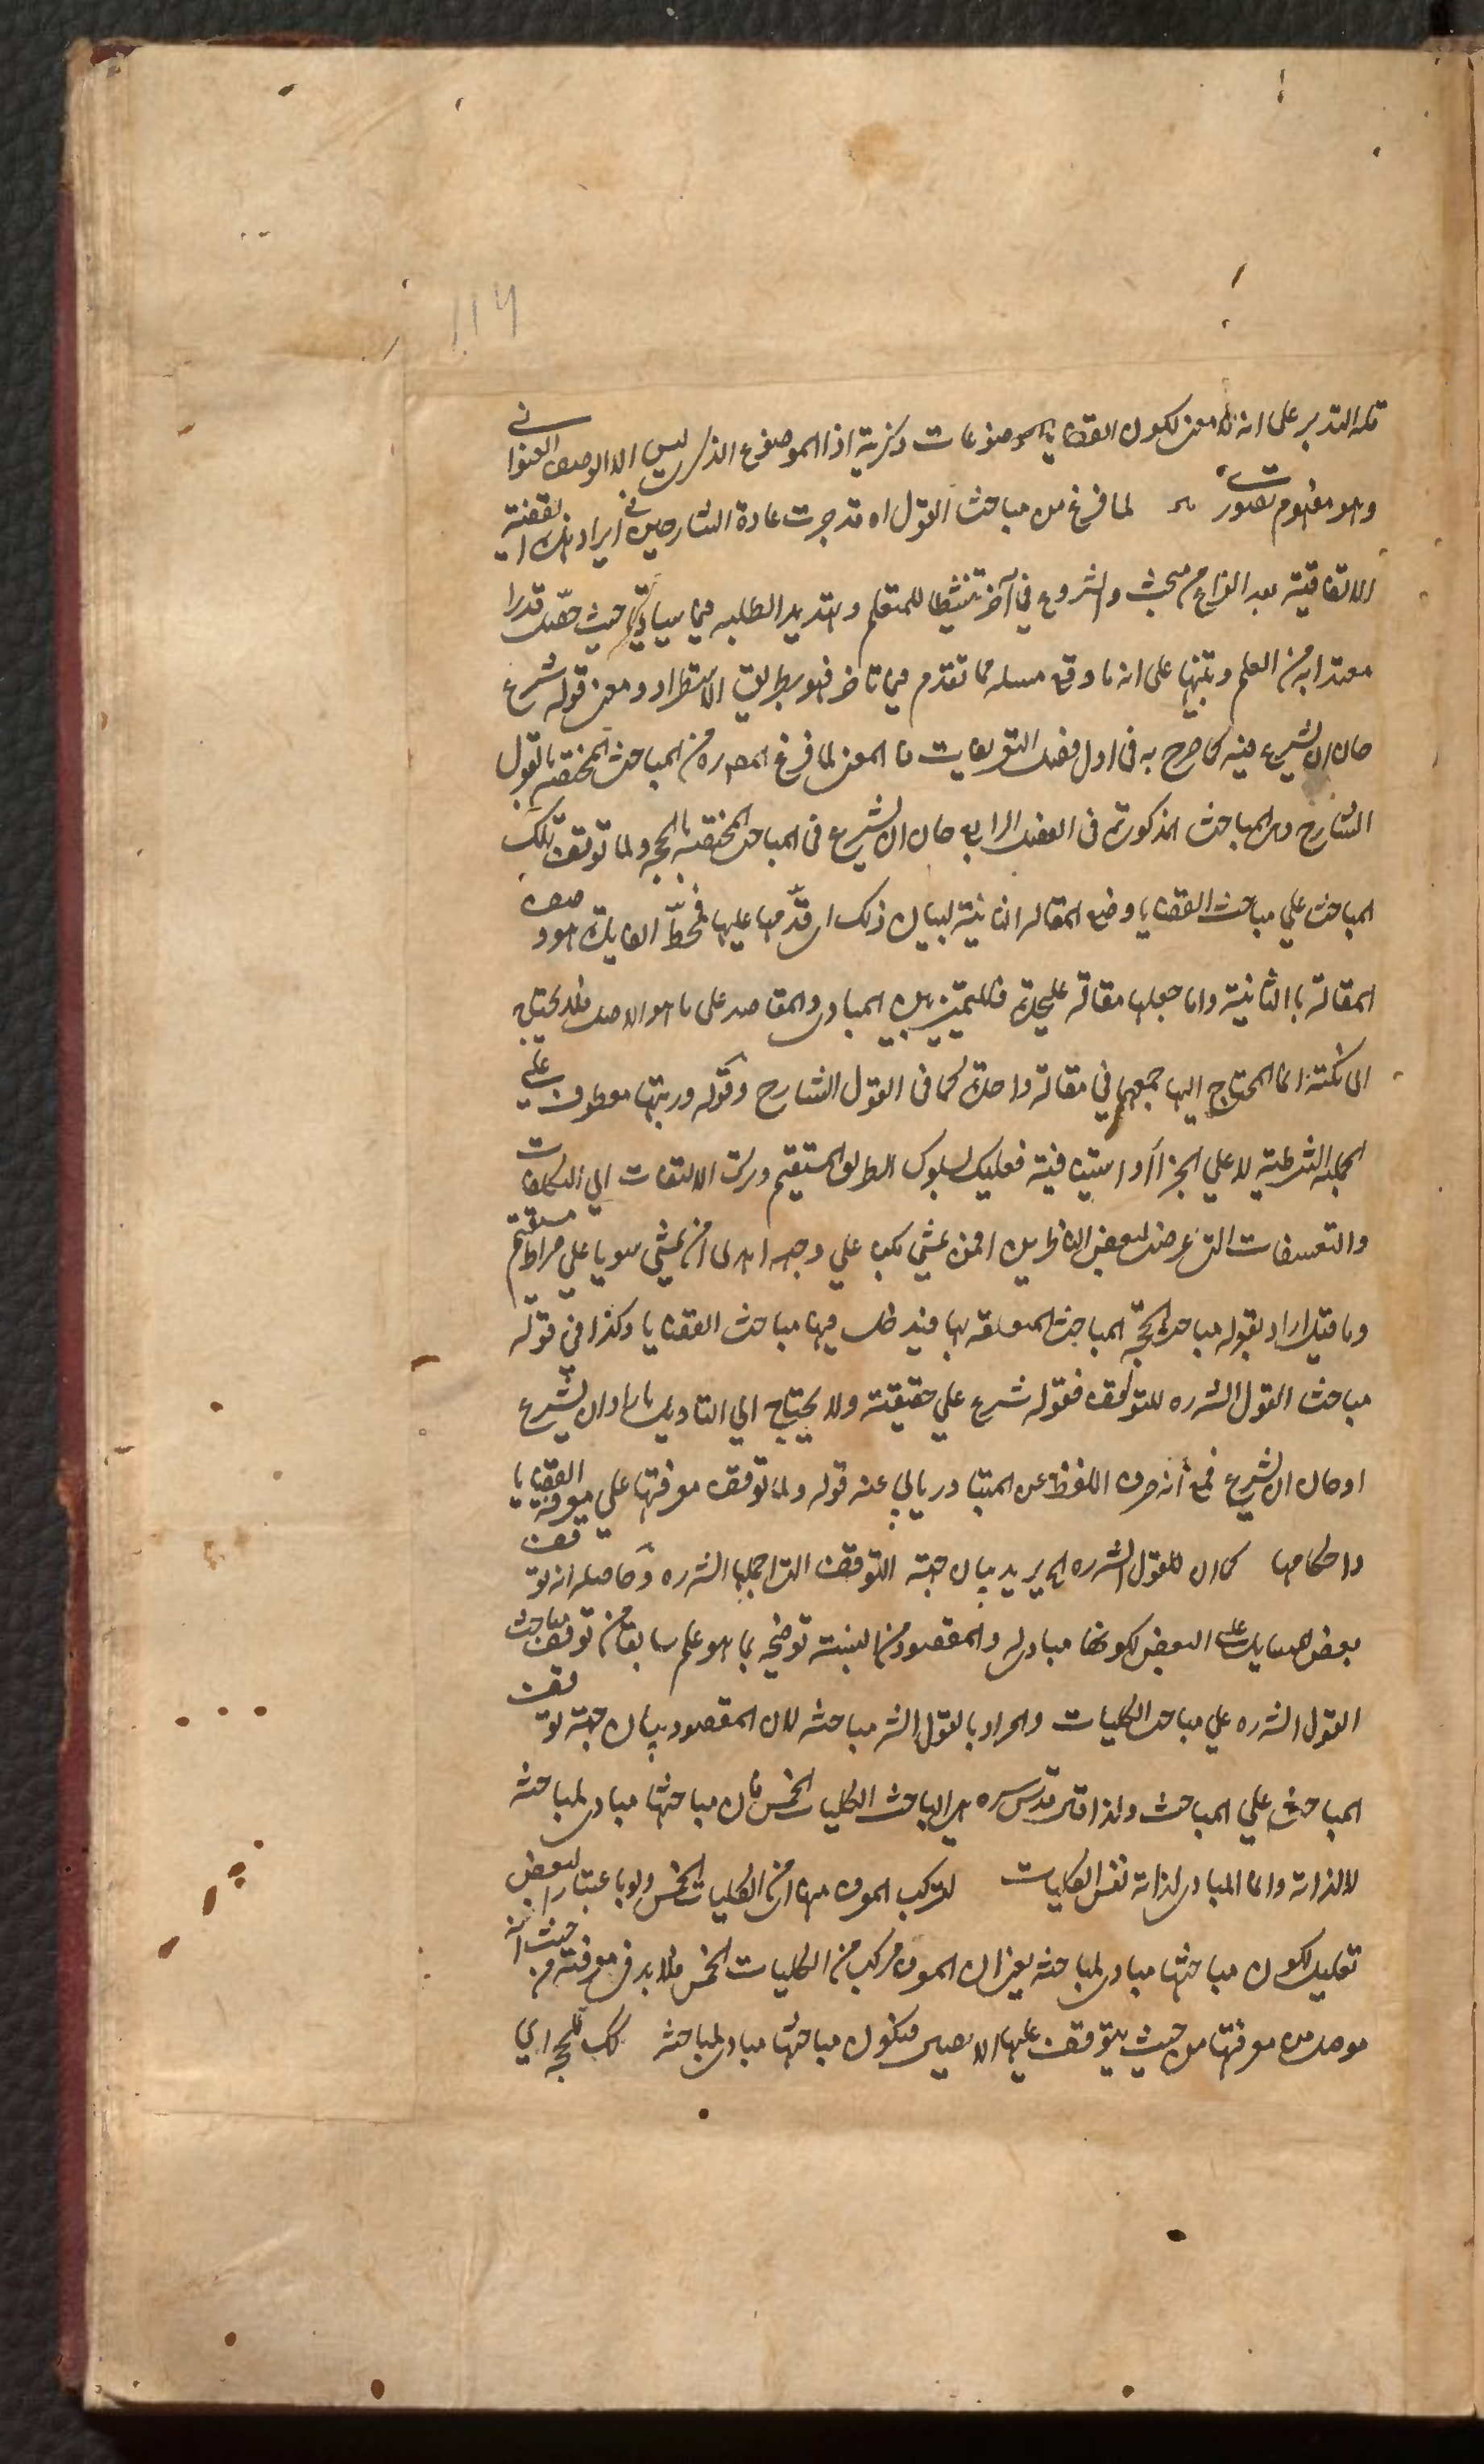 114
قلة التدبر على انه لا معنى لكون القضايا موضوعات ذكرية اذ الموضوع الذكرى ليس الا الوصف العنوانى
وهو مفهوم تصورى لما فرغ من مباحث القول اه قد جرت عادة الشارحين فى ايراد هذه القضية
الاتفاقية بعد الفراغ من مبحث والشروع في آخر تنشيطا للمتعلم وللطلبه فيما سيأتى حيث حصل قدرا
معتدا به من العلم وتنبيها على انه ما وقع مسئلة مما تقدم فيما تاخر فهو بطريق الاستطراد ومعنى قوله شرع
حان ان يشرع فيه كما صرح به فى اول فصل التعريفات فالمعنى لما فرغ المص ره من المباحث المختصة بالقول
الشارح وهى المباحث المذكورة فى الفصل الرابع حان ان يشرع فى المباحث المختصة بالحجة ولما توقف تلك
المباحث علي مباحث القضايا وضع المقالة الثانية لبيان ذلك اى قدمها عليها فمحط الفايدة هو وصف
المقالة بالثانية وانما جعلها مقالة عليحدة فللتمييز بين المبادى والمقاصد على ما هو الاصل فلا يحتاج
الى نكتة انما المحتاج اليها جمعهما في مقالة واحدة كما فى القول الشارح وقوله ورتبها معطوف علي
الجملة الشرطية لا علي الجزاء او استينافية فعليك بسلوك الطريق المستقيم وترك الالتفات الي التكلفات
والتعسفات التى عرضت لبعض الناظرين افمن يمشي مكبا علي وجهه اهدى امن يمشي سويا علي صراط مستقيم
وما قيل اراد بقوله مباحث الحجة المباحث المتعلقه بها فيدخل فيها مباحث القضايا وكذا في قوله
مباحث القول الشره للتوقف فقوله شرع علي حقيقته ولا يحتاج الي التاويل باراد ان يشرع
او حان ان يشرع فمع انه صرف اللفظ عن المتبادر يابي عنه قوله ولما توقف معرفتها علي معرفة القضايا
واحكامها كما ان للقول الشره الخ يريد بيان جهة التوقف التى اجملها الشره وحاصله انه توقف
بعض المسايل على البعض لكونها مبادى له والمقصود من التشبيه توضيحه بما هو علم سابقا من توقف مباحث
القول الشره علي مباحث الكليات والمراد بالقول الشر مباحثه لان المقصود بيان جهة توقف
المباحث علي المباحث ولذا قال قدس سره هى الباحث الكليات الخمس فان مباحثها مبادى لمباحثه
لا لذاته وانما المبادى لذاته نفس الكليات لتركب المعرف منها اى من الكليات الخمس ولو باعتبار البعض
تعليل لكون مباحثها مبادى لمباحثه يعنى ان المعرف مركب من الكليات الخمس فلا بد فى معرفته من حيث انه
موصل من معرفتها من حيث يتوقف عليها الايصال فتكون مباحثها مبادى لمباحثه كك للحجة اي